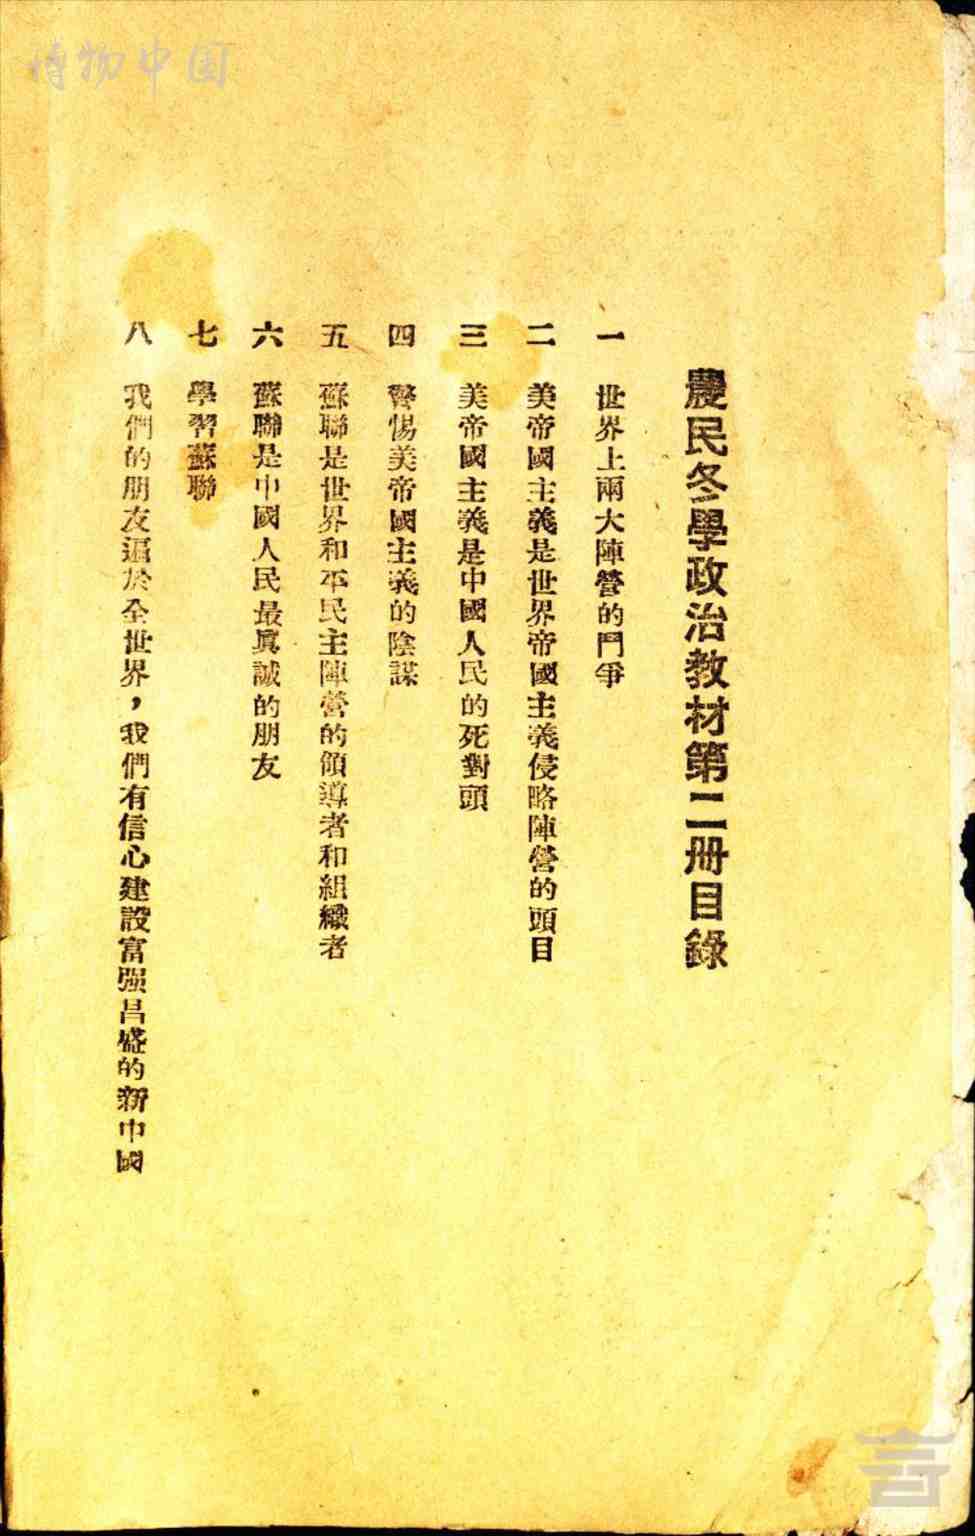 農民冬學政治教材第二冊目錄
一 世界上兩大陣營的鬥爭
二 美帝國主義是世界帝國主義侵略陣營的頭目
三 美帝國主義是中國人民的死對頭
四 警惕美帝國主義的陰謀
五 蘇聯是世界和平民主陣營的領導者和組織者
六 蘇聯是中國人民最眞誠的朋友
七 學習蘇聯
八 我們的朋友遍於全世界，我們有信心建設富强昌盛的新中國
博物中国